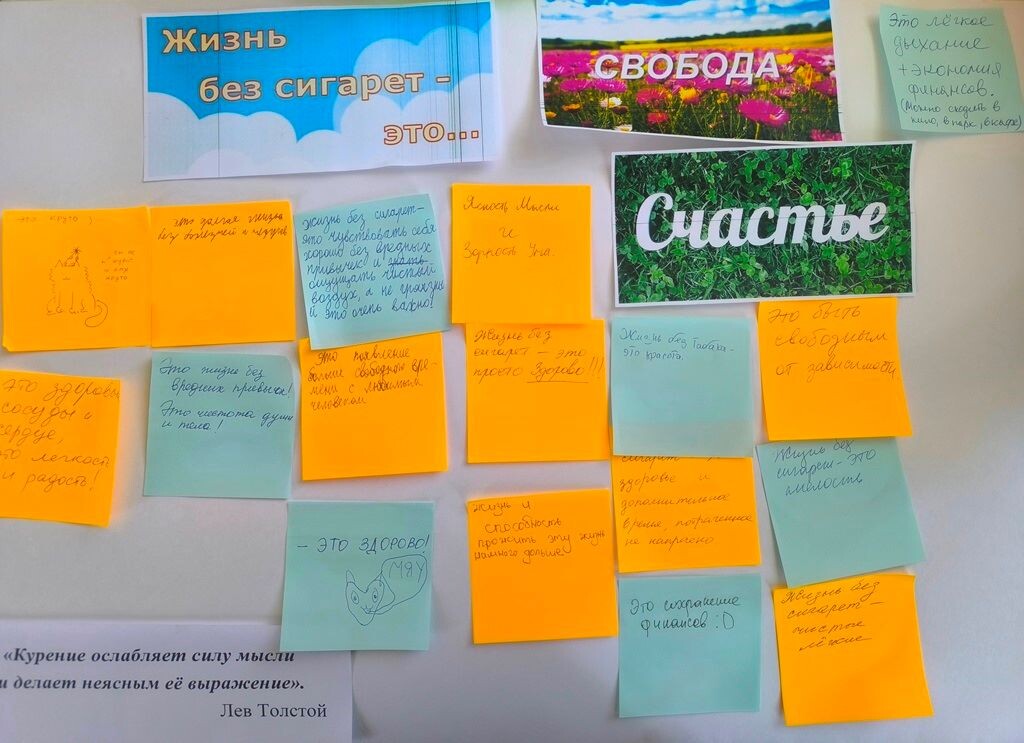 Жизнь
без сигарет -
это...
СВОБОДА
Это лёгкое
дыхание
+ экономия
финансов.
(Можно сходить в
кино, в парк, в кафе)
Счастье
это круто)
это долгая жизнь
без болезней и недугов
Жизнь без сигарет -
это чувствовать себя
хорошо без вредных
привычек и знать
ощущать чистый
воздух, а не грязный
и это очень важно!
Ясность Мысли
и
Здравость Ума.
Это здоровые
сосуды и
сердце,
это легкость
и радость!
Это жизнь без
вредных привычек!
Это чистота души
и тела!
Это появление
больше свободного вре-
мени с любимым
человеком
Жизнь без
сигарет - это
просто Здорово!!!
Жизнь без Табака -
это красота.
Это быть
свободным
от зависимости.
- ЭТО ЗДОРОВО!
МЯУ
Жизнь и
способность
прожить эту жизнь
намного дольше
сигарет
здоровье и
дополнительное
время, потраченное
не напрасно
Жизнь без
сигарет - это
Это сохранение
финансов :D
Жизнь без
сигарет -
чистые
лёгкие
«Курение ослабляет силу мысли
и делает неясным её выражение».
Лев Толстой